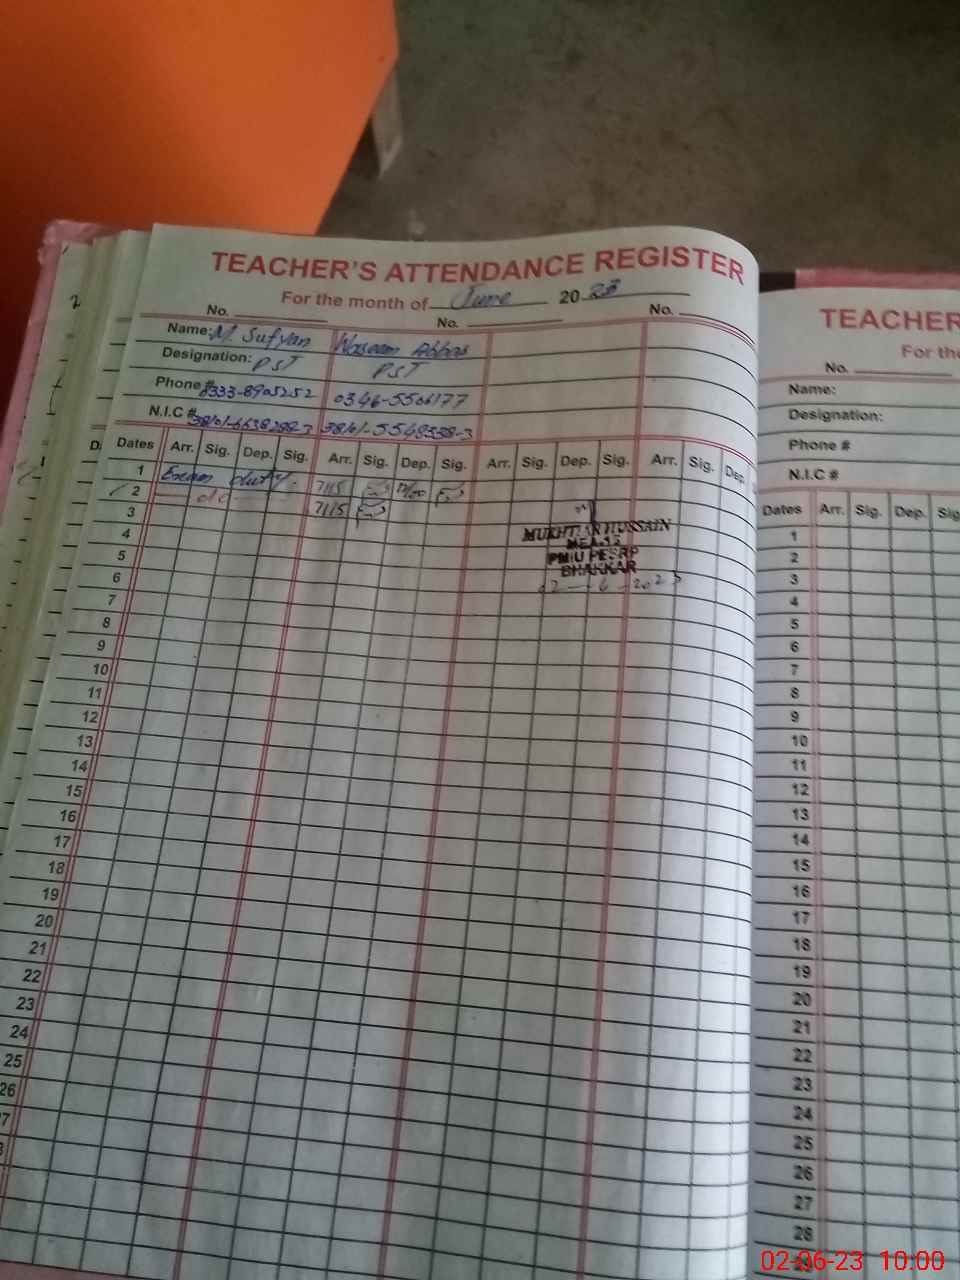 TEACHER'S ATTENDANCE REGISTER
For the month of June 2023
No. No. No.
Name: M. Sufyan Waseem Abbas
Designation: PST PST
Phone # 0333-8905252 0346-5506177
N.I.C #
Dates Arr. Sig. Dep. Sig. Arr. Sig. Dep. Sig. Arr. Sig. Dep. Sig. Arr. Sig. Dep.
1 Exam duty. 7115
2 do 7115
3
MUKHTIAR HUSSAIN
MEA-12
PMIU PESRP
BHAKKAR
02-6-2023
4
5
6
7
8
9
10
11
12
13
14
15
16
17
18
19
20
21
22
23
24
25
26
7
TEACHER
For the
No.
Name:
Designation:
Phone #
N.I.C #
Dates Arr. Sig. Dep. Sig
1
2
3
4
5
6
7
8
9
10
11
12
13
14
15
16
17
18
19
20
21
22
23
24
25
26
27
28
02-06-23 10:00